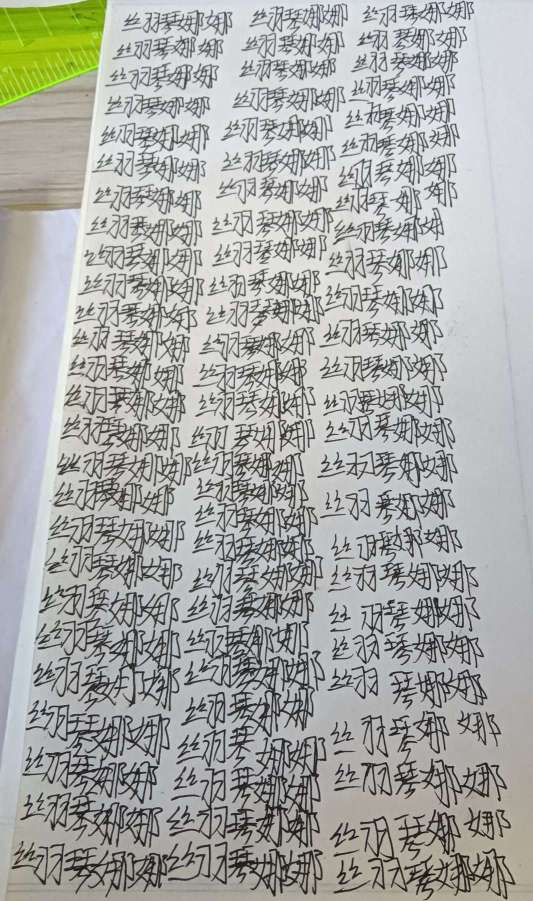 丝羽琴娜娜 丝羽琴娜娜 丝羽琴娜娜
丝羽琴娜娜 丝羽琴娜娜 丝羽琴娜娜
丝羽琴娜娜 丝羽琴娜娜 丝羽琴娜娜
丝羽琴娜娜 丝羽琴娜娜 丝羽琴娜娜
丝羽琴娜娜 丝羽琴娜娜 丝羽琴娜娜
丝羽琴娜娜 丝羽琴娜娜 丝羽琴娜娜
丝羽琴娜娜 丝羽琴娜娜 丝羽琴娜娜
丝羽琴娜娜 丝羽琴娜娜 丝羽琴娜娜
丝羽琴娜娜 丝羽琴娜娜 丝羽琴娜娜
丝羽琴娜娜 丝羽琴娜娜 丝羽琴娜娜
丝羽琴娜娜 丝羽琴娜娜 丝羽琴娜娜
丝羽琴娜娜 丝羽琴娜娜 丝羽琴娜娜
丝羽琴娜娜 丝羽琴娜娜 丝羽琴娜娜
丝羽琴娜娜 丝羽琴娜娜 丝羽琴娜娜
丝羽琴娜娜 丝羽琴娜娜 丝羽琴娜娜
丝羽琴娜娜 丝羽琴娜娜 丝羽琴娜娜
丝羽琴娜娜 丝羽琴娜娜 丝羽琴娜娜
丝羽琴娜娜 丝羽琴娜娜 丝羽琴娜娜
丝羽琴娜娜 丝羽琴娜娜 丝羽琴娜娜
丝羽琴娜娜 丝羽琴娜娜 丝羽琴娜娜
丝羽琴娜娜 丝羽琴娜娜 丝羽琴娜娜
丝羽琴娜娜 丝羽琴娜娜 丝羽琴娜娜
丝羽琴娜娜 丝羽琴娜娜 丝羽琴娜娜
丝羽琴娜娜 丝羽琴娜娜 丝羽琴娜娜
丝羽琴娜娜 丝羽琴娜娜 丝羽琴娜娜
丝羽琴娜娜 丝羽琴娜娜 丝羽琴娜娜
丝羽琴娜娜
丝羽琴娜娜